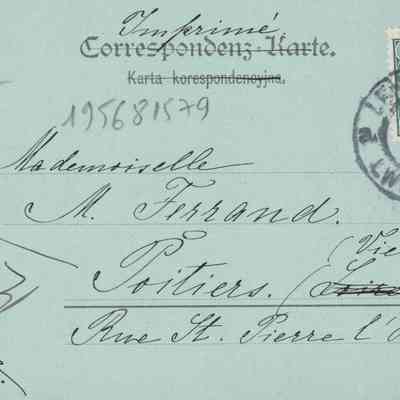 Imprimé
Correspondenz-Karte.
Karta korespondencyjna.
195681579
Mademoiselle
M. Ferrand.
(Vie
Poitiers.
Rue St. Pierre l'